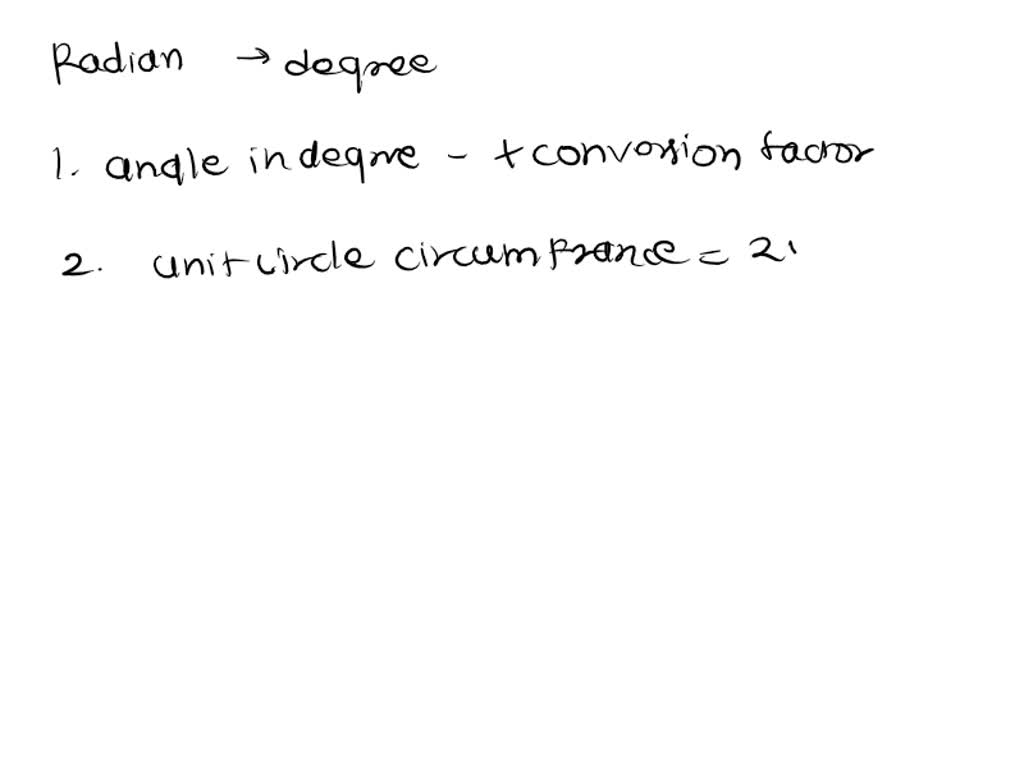 Radian → degree
1. angle in degree - × conversion factor
2. unit circle circumfrance = 2